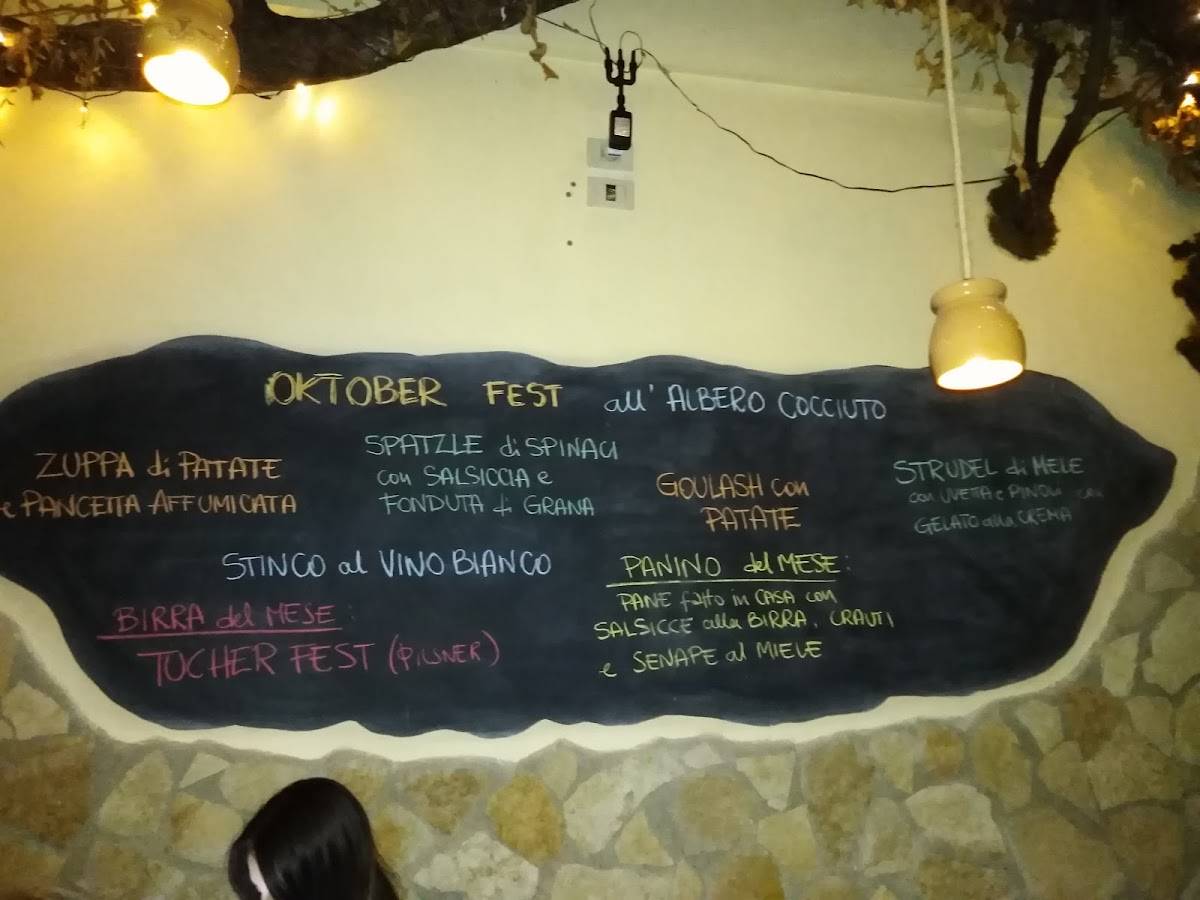 OKTOBER FEST all' ALBERO COCCIUTO
ZUPPA di PATATE
e PANCETTA AFFUMICATA
SPATZLE di SPINACI
con SALSICCIA e
FONDUTA di GRANA
GOULASH con
PATATE
STRUDEL di MELE
con UVETTA e PINOLI con
GELATO alla CREMA
STINCO al VINO BIANCO
BIRRA del MESE:
TOCHER FEST (PILSNER)
PANINO del MESE:
PANE fatto in CASA con
SALSICCE alla BIRRA, CRAUTI
e SENAPE al MIELE